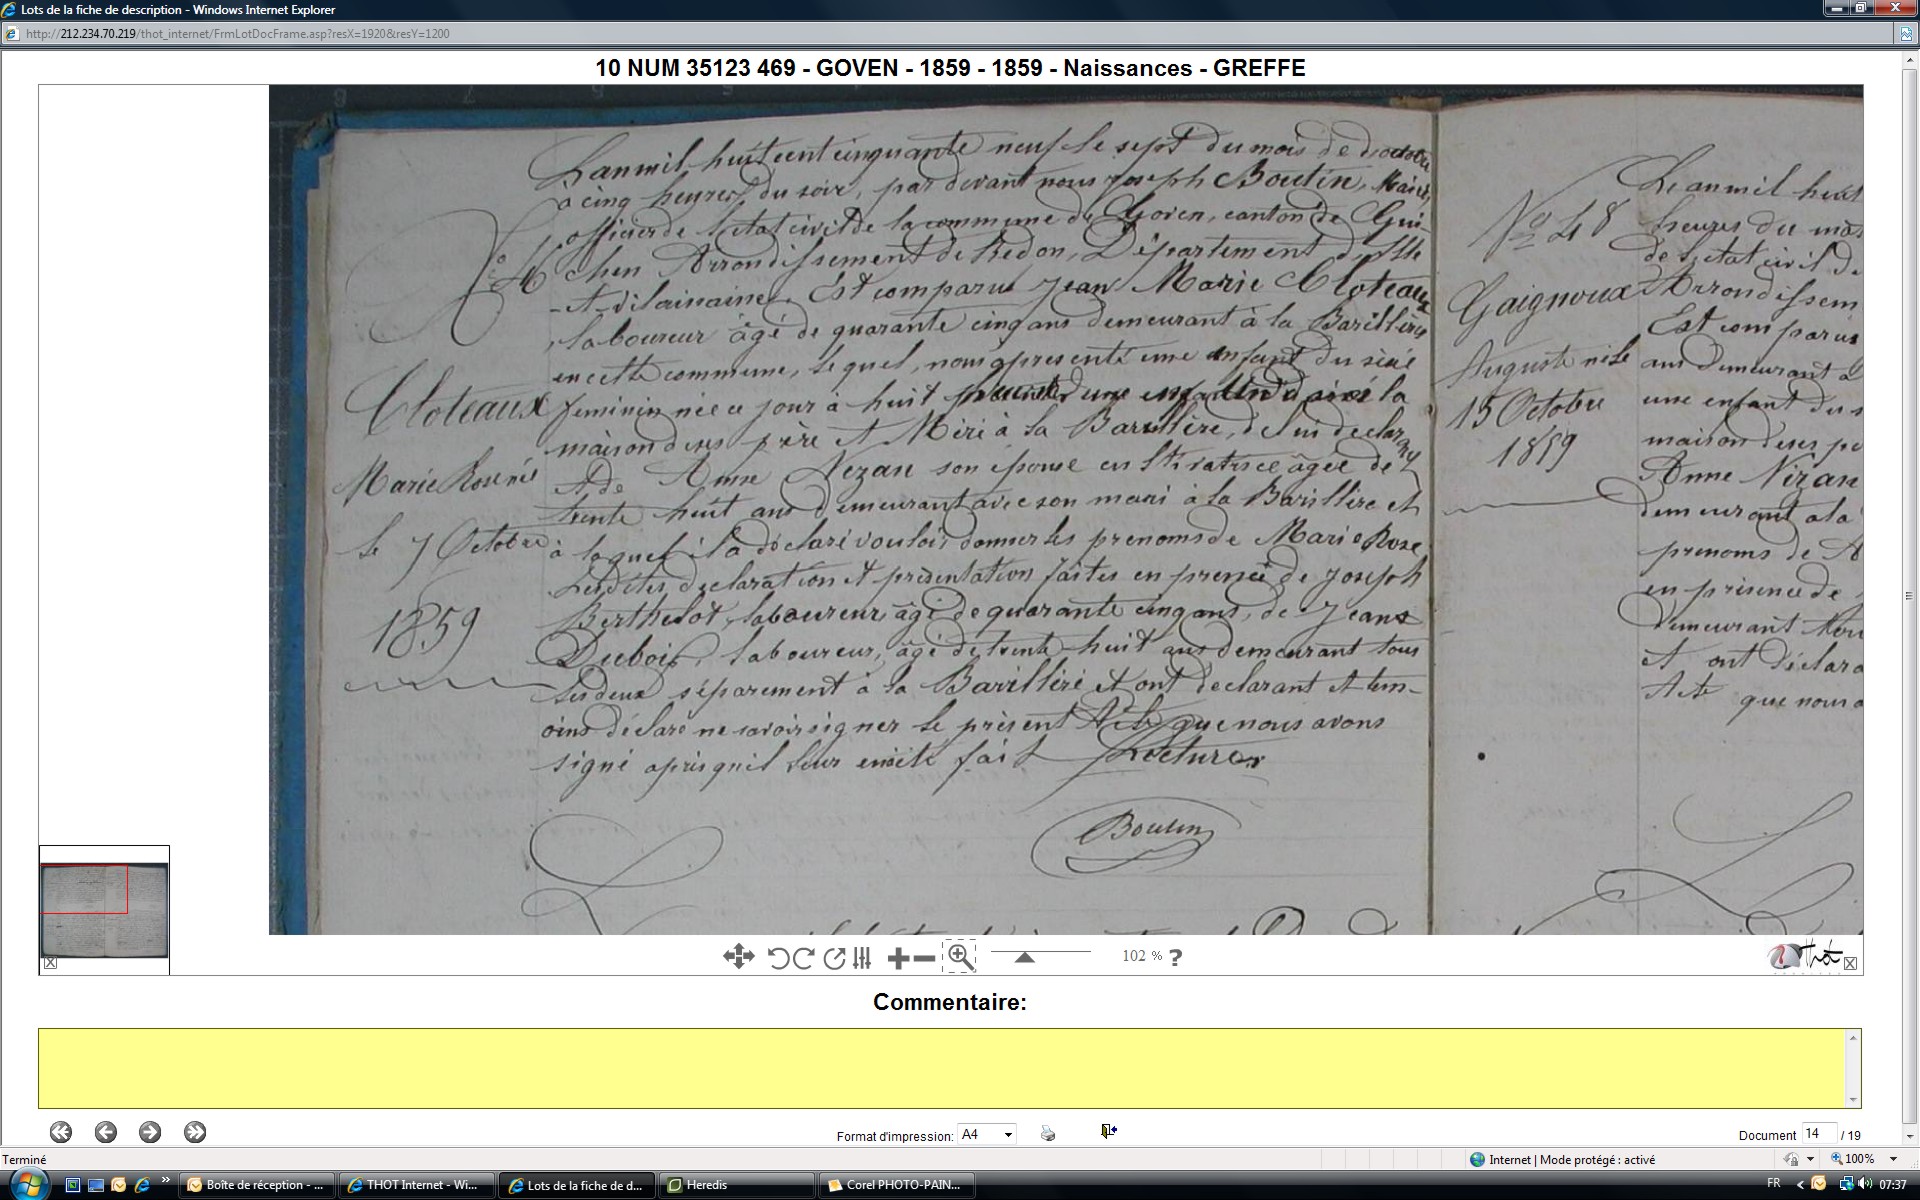 Lots de la fiche de description - Windows Internet Explorer
http://212.234.70.219/thot_internet/FrmLotDocFrame.asp?resX=1920&resY=1200
10 NUM 35123 469 - GOVEN - 1859 - 1859 - Naissances - GREFFE
Cloteaux
Marie Rose née
le 7 Octobre
1859
L'an mil huit cent cinquante neuf le sept du mois de d'octobre
à cinq heures du soir, par devant nous Joseph Boutin, Maire,
officier de l'état civil de la commune de Goven, canton de Gui-
chen Arrondissement de Redon, Département d'Ille
-et-vilainaine, Est comparu Jean Marie Cloteaux
laboureur âgé de quarante cinq ans demeurant à la Barillière
en cette commune, lequel, nous a presenté une enfant du sèxe
feminin née ce jour à huit la
maison de ses père et Mère à la Barillière, de lui declarant
et de Anne Nezan son épouse cultivatrice âgée de
trente huit ans demeurant avec son mari à la Barillière et
à laquel il a déclaré vouloir donner les prenoms de Marie Rose
Lesdites declaration et présentation faites en presence de Joseph
Berthelot, laboureur, âgé de quarante cinq ans, de Jean
Dubois, laboureur, âgé de trente-huit ans demeurant tous
les deux séparement à la Barillière et ont declarant et tem-
oins déclaré ne savoir signer le présent Acte que nous avons
signé après qu'il leur en été fait Lecture
Boutin
No 48
Gaignoux
Auguste né le
15 Octobre
1859
L'an mil huit
heures du
de l'etat civil de
Arrondissem
Est comparu
ans demeurant à
une enfant du s
maison de ses pe
Anne Nezan
demeurant a la
prenoms de
en présence de
Demeurant
et ont déclara
Acte que nous a
102 % ?
Thot
Commentaire:
Format d'impression: A4
Document 14 / 19
Terminé
Internet | Mode protégé : activé
100%
Boîte de réception - ...
THOT Internet - Wi...
Lots de la fiche de d...
Heredis
Corel PHOTO-PAIN...
FR
07:37